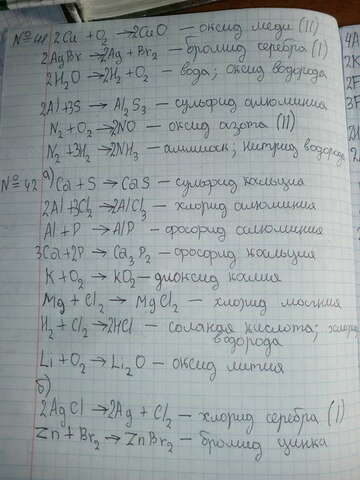 №41 2Cu + O₂ → 2CuO — оксид меди (II)
2AgBr → 2Ag + Br₂ — бромид серебра (I)
2H₂O → 2H₂ + O₂ — вода; оксид водорода
2Al+3S → Al₂S₃ — сульфид алюминия
N₂ + O₂ → 2NO — оксид азота (II)
N₂ + 3H₂ → 2NH₃ — аммиак; нитрид водорода
№42 а) Ca + S → CaS — сульфид кальция
2Al + 3Cl₂ → 2AlCl₃ — хлорид алюминия
Al + P → AlP — фосфид алюминия
3Ca + 2P → Ca₃P₂ — фосфид кальция
K + O₂ → KO₂ — диоксид калия
Mg + Cl₂ → MgCl₂ — хлорид магния
H₂ + Cl₂ → 2HCl — соляная кислота; хлорид
водорода
Li + O₂ → Li₂O — оксид лития
б)
2AgCl → 2Ag + Cl₂ — хлорид серебра (I)
Zn + Br₂ → ZnBr₂ — бромид цинка